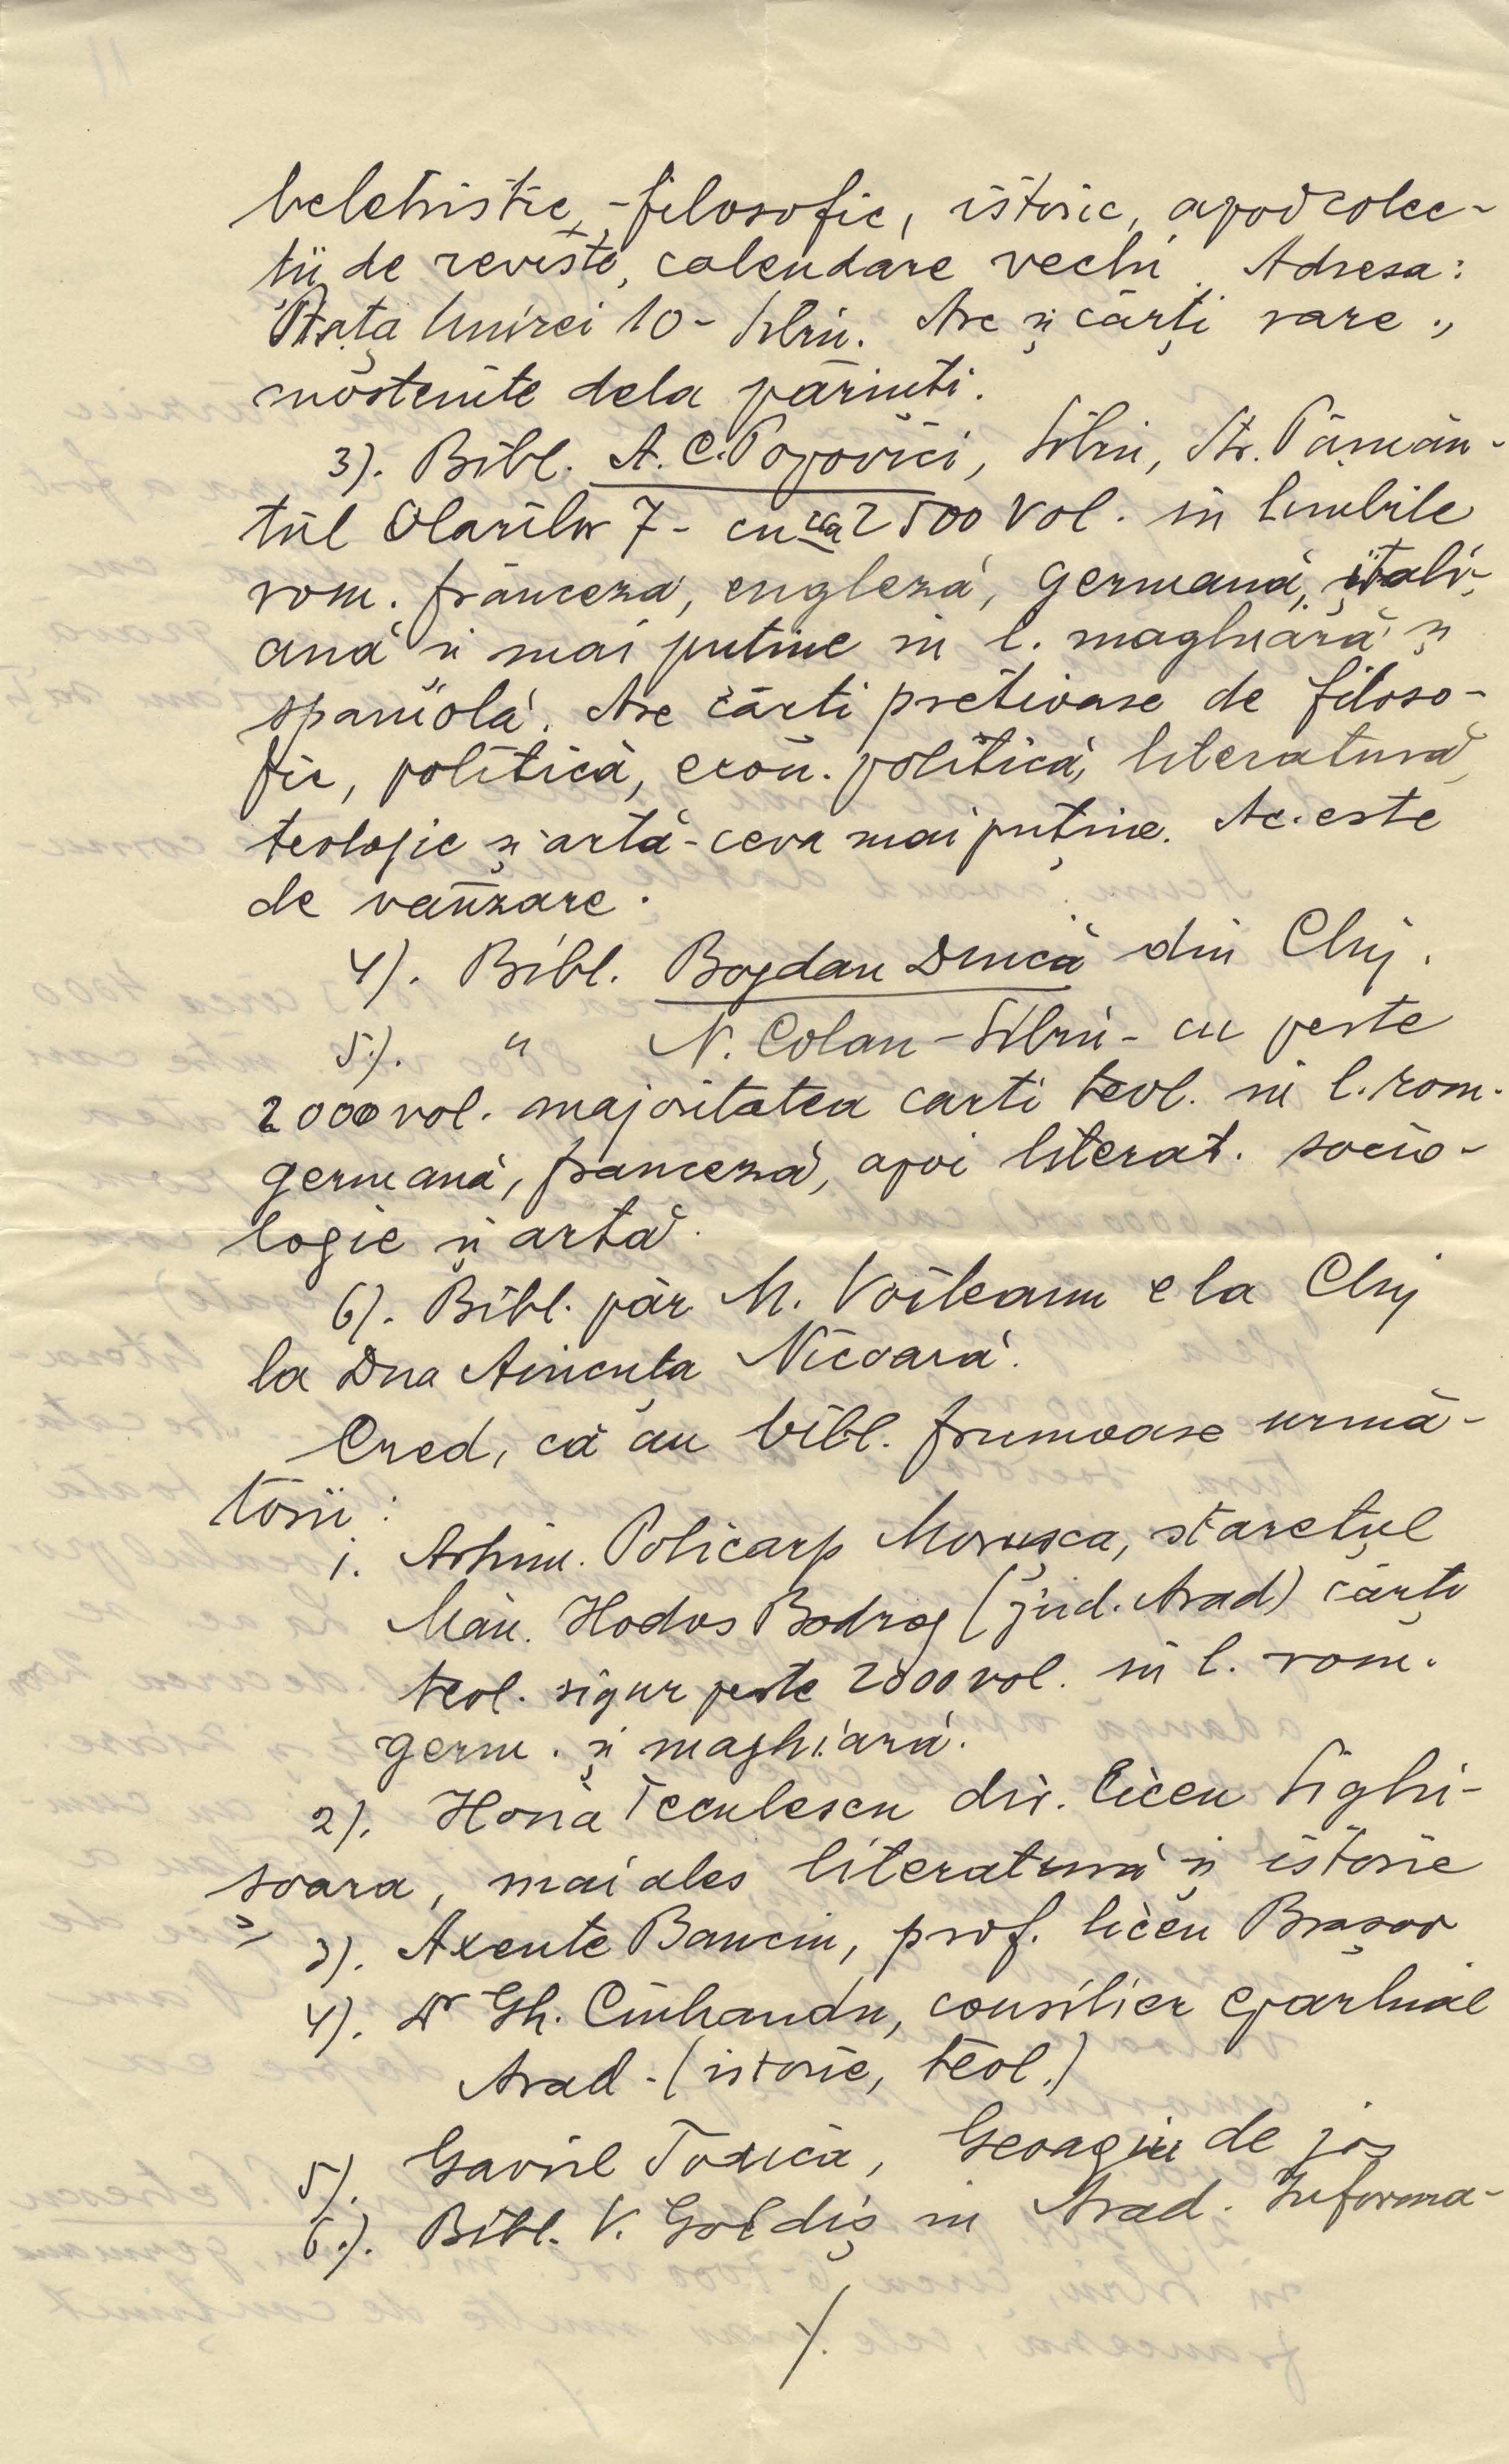 beletristic, -filosofic, istoric, apoi colec-
tii de reviste, calendare vechi. Adresa:
Piața Unirei 10 - Sibiu. Are și cărți rare,
moștenite dela părinti.
3). Bibl. A. C. Popovici, Sibiu, Str. Pămân-
tul Olarilor 7 - cu ca 2500 vol. in limbile
rom. franceză, engleză, germană, itali-
ană și mai putine in l. maghiară și
spaniolă. Are cărti pretioase de filoso-
fie, politică, econ. politică, literatură,
teologie și artă - ceva mai puține. Ac. este
de vânzare.
4). Bibl. Bogdan Duică din Cluj.
5). " N. Colan - Sibiu - cu peste
2000 vol. majoritatea carti teol. in l. rom.
germană, franceză, apoi literat. socio-
logie și artă.
6). Bibl. păr. M. Voileanu e la Cluj
la Dna Aincuța Nicoară.
Cred, că au bibl. frumoase urmă-
torii:
1. Arhim. Policarp Morușca, starețul
Măn. Hodos Bodrog (jud. Arad) cărți
teol. sigur peste 2000 vol. in l. rom.
germ. și maghiară.
2). Horia Teculescu dir. liceu Sighi-
soara, mai ales literatură și istorie
3). Axente Banciu, prof. liceu Brașov
4). Dr Gh. Ciuhandu, consilier eparhial
Arad - (istorie, teol.)
5). Gavril Todică, Geoagiu de jos
6.). Bibl. V. Goldiș in Arad. Informa-
./.